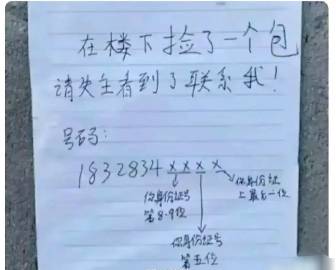 在楼下捡了一个包
请失主看到了联系我!
号码:
1832834××××
你身份证号
第8.9位
你身份证号
第五位
你身份证
上最后一位